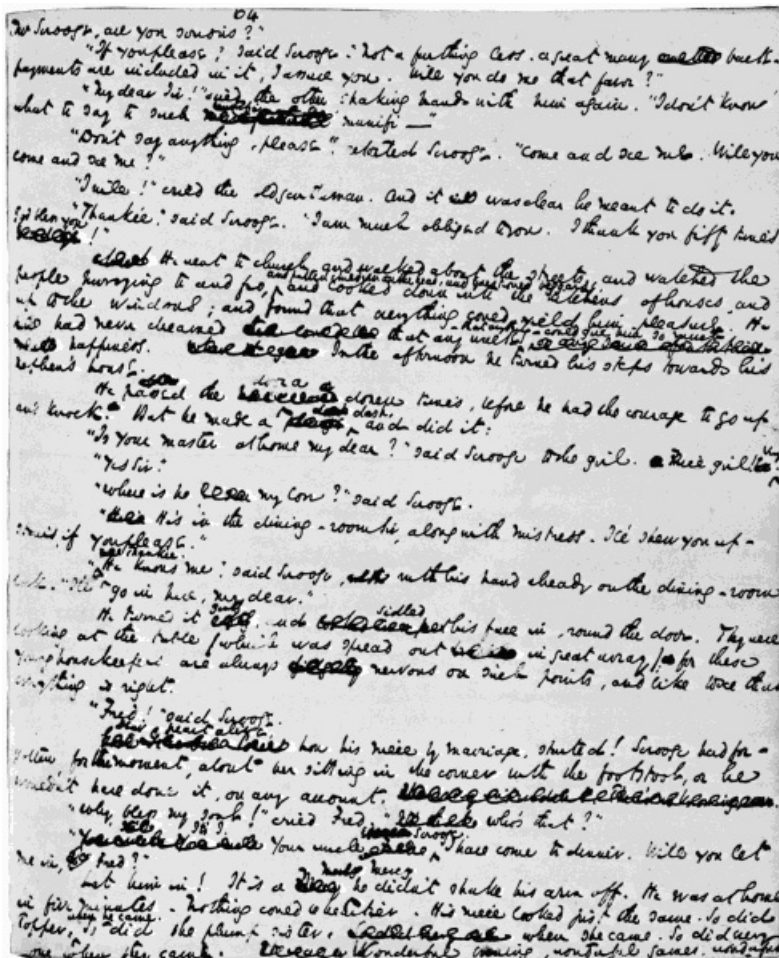 64
Mr Scrooge, are you serious?"
"If you please," said Scrooge. "Not a farthing less. a great many back-
payments are included in it, I assure you. Will you do me that favor?"
"My dear Sir!" said the other shaking hands with him again. "I don't know
what to say to such munifi —"
"Don't say anything, please," retorted Scrooge. "Come and see me. Will you
come and see me?"
"I will!" cried the old gentleman. And it was clear he meant to do it.
"Thankee," said Scrooge. "I am much obliged to you. I thank you fifty times.
God bless you!"
He went to church, and walked about the streets, and watched the
people hurrying to and fro, and looked down into the kitchens of houses, and
up to the windows; and found that everything could yield him pleasure. He
had never dreamed that any walk - that anything - could give him so much
happiness. In the afternoon he turned his steps towards his
nephew's house.
He passed the door a dozen times, before he had the courage to go up
and knock. But he made a dash, and did it:
"Is your master at home my dear?" said Scrooge to the girl. Nice girl! very
"Yes Sir."
"Where is he my love?" said Scrooge.
"He's in the dining-room sir, along with mistress. I'll shew you up-
stairs, if you please."
"Thankee. He knows me," said Scrooge, with his hand already on the dining-room
lock. "I'll go in here, my dear."
He turned it gently, and sidled his face in, round the door. They were
looking at the table (which was spread out in great array) for these
young housekeepers are always nervous on such points, and like to see that
everything is right.
"Fred!" said Scrooge.
Dear heart alive how his niece by marriage started! Scrooge had for-
gotten for the moment, about her sitting in the corner with the footstool, or he
wouldn't have done it, on any account.
"Why bless my soul!" cried Fred, "who's that?"
"It's I. Your uncle Scrooge. I have come to dinner. Will you let
me in, Fred?"
Let him in! It is a mercy he didn't shake his arm off. He was at home
in five minutes. Nothing could be heartier. His niece looked just the same. So did
Topper, when he came. So did the plump sister, when she came. So did every
one when they came. Wonderful games, wonderful